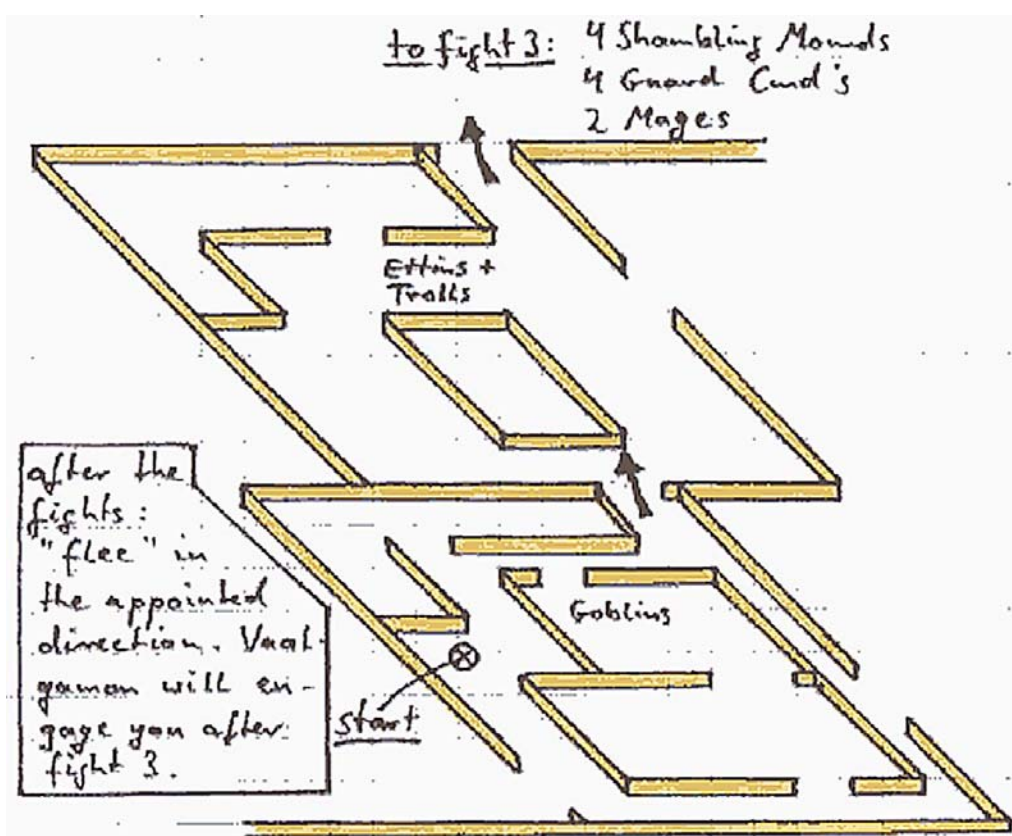 to fight 3: 4 Shambling Mounds
4 Guard Cmd's
2 Mages
Ettins +
Trolls
Goblins
after the
fights:
"flee" in
the appointed
direction. Vaal-
gamon will en-
gage you after
fight 3.
start